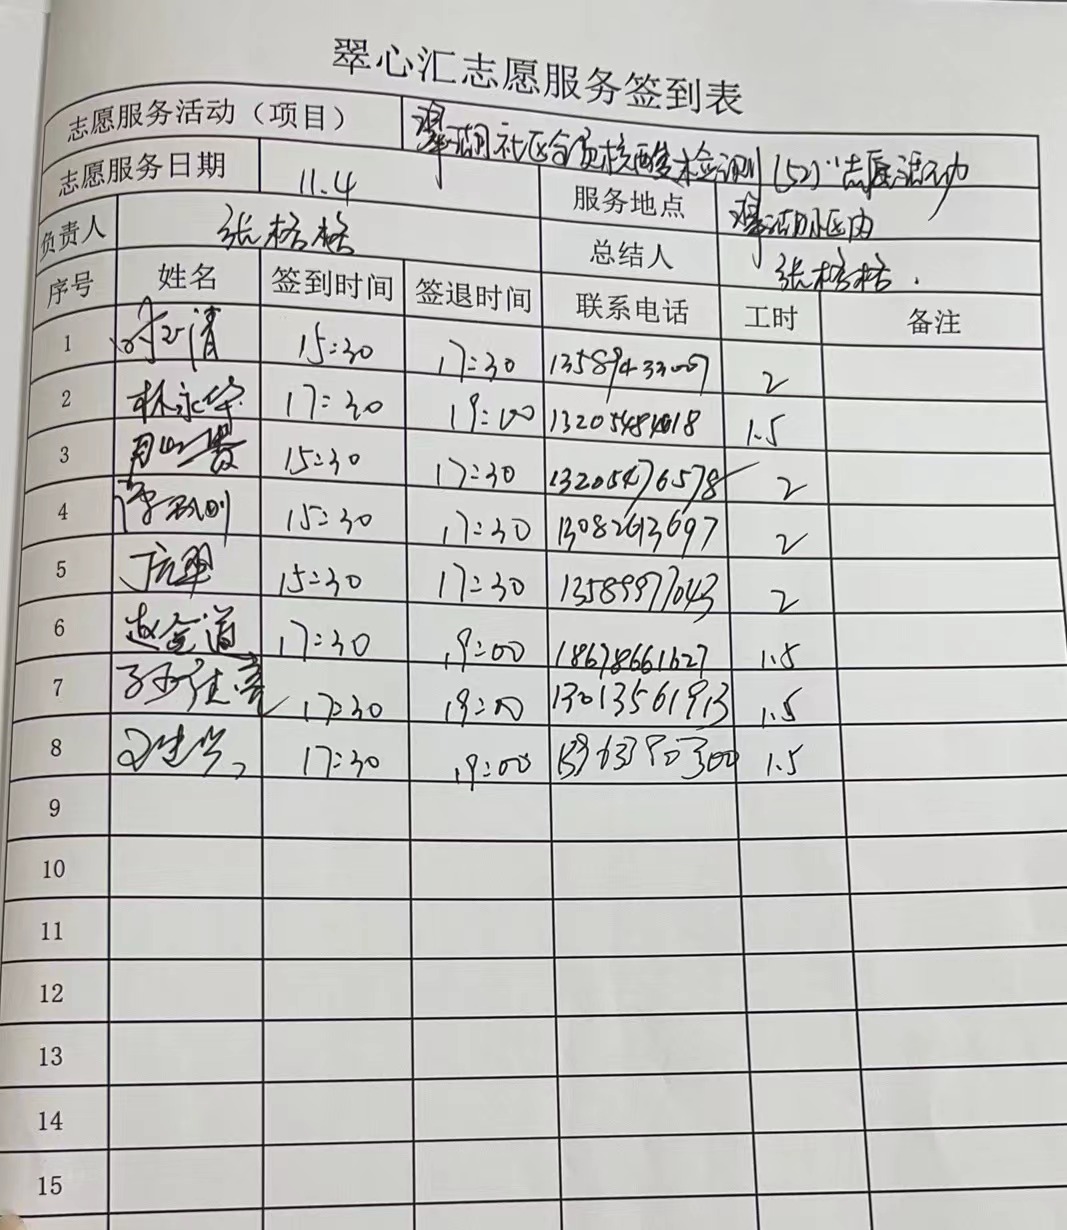 翠心汇志愿服务签到表
志愿服务活动（项目） 翠湖社区全员核酸检测(52)"志愿活动
志愿服务日期 11.4 服务地点 翠湖小区内
负责人 张格格 总结人 张格格.
序号 姓名 签到时间 签退时间 联系电话 工时 备注
1 15:30 17:30 2
2 林永华 17:30 19:00 1.5
3 15:30 17:30 13205476578 2
4 15:30 17:30 13082613697 2
5 15:30 17:30 13589977043 2
6 赵金道 17:30 19:00 18678661627 1.5
7 17:30 19:00 13013561913 1.5
8 17:30 19:00 1.5
9
10
11
12
13
14
15